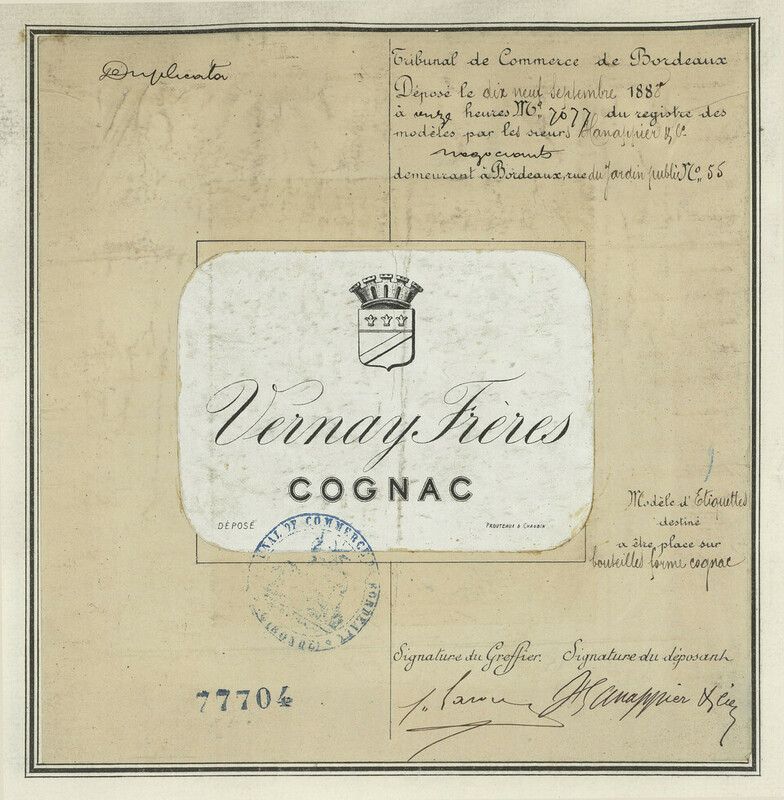 Duplicata
Tribunal de Commerce de Bordeaux
Déposé le dix neuf Septembre 1888
à onze heures No. 7677 du registre des
modèles par les sieurs Hanappier & Cie
négociants
demeurant à Bordeaux, rue du Jardin public No. 55
Vernay Frères
COGNAC
DÉPOSÉ
PROUTEAUX & CHAUBIN
Modèle d'Etiquettes
destiné
a être place sur
bouteilles forme cognac
TRIBUNAL DE COMMERCE DE BORDEAUX
Signature du Greffier. Signature du déposant
Hanappier & Cie
77704